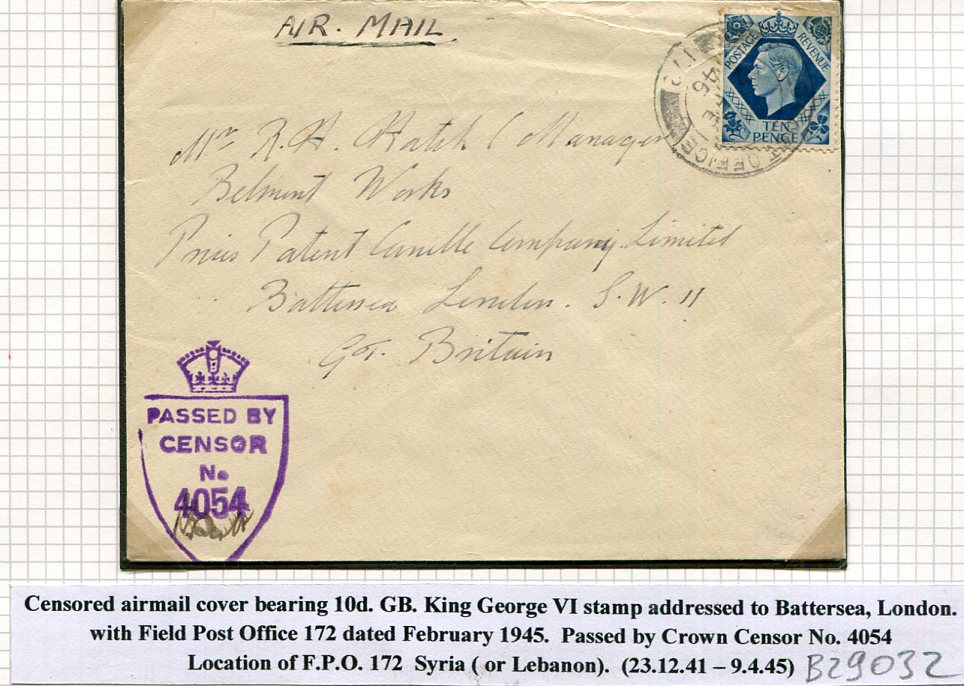 AIR. MAIL
POSTAGE REVENUE
TEN
PENCE
OFFICE
172
45
Mr R.H. Hatch (Manager
Belmont Works
Prices Patent Candle Company Limited
Battersea London. S.W. 11
Gt. Britain
PASSED BY
CENSOR
No
4054
Censored airmail cover bearing 10d. GB. King George VI stamp addressed to Battersea, London.
with Field Post Office 172 dated February 1945. Passed by Crown Censor No. 4054
Location of F.P.O. 172 Syria ( or Lebanon). (23.12.41 – 9.4.45) B29032